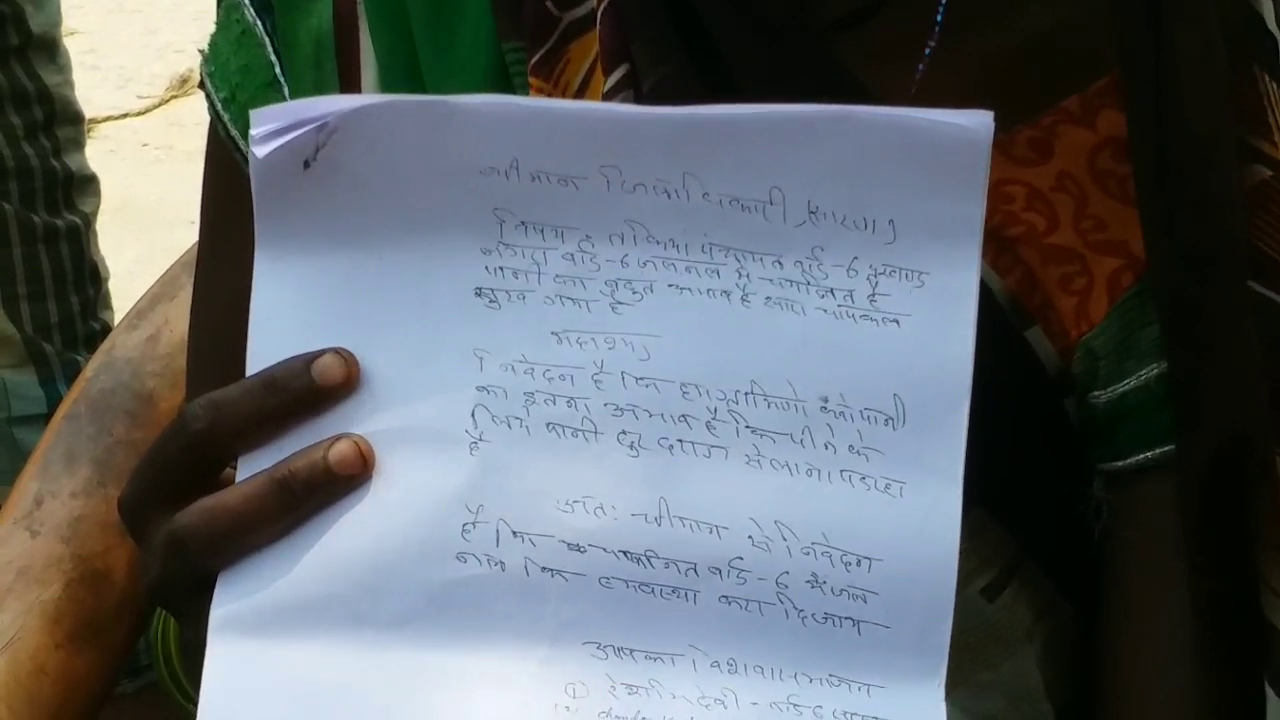 श्रीमान जिलाधिकारी, सारण
विषय है तकिया पंचायत वार्ड-6 प्रखण्ड
नगरा वार्ड-6 जलनल में चयनित है
पानी का बहुत अभाव है सारा चापाकल
सुख गया है
महाशय,
निवेदन है कि हम ग्रामिणो को पानी
का इतना अभाव है कि पीने के
लिये पानी दुर दराज से लाना पड़ रहा
है
अतः श्रीमान से निवेदन
है कि चयनित वार्ड-6 में जल
नल कि व्यवस्था करा दिजाय
आपका विश्वासभाजन
① देवी - वार्ड 6